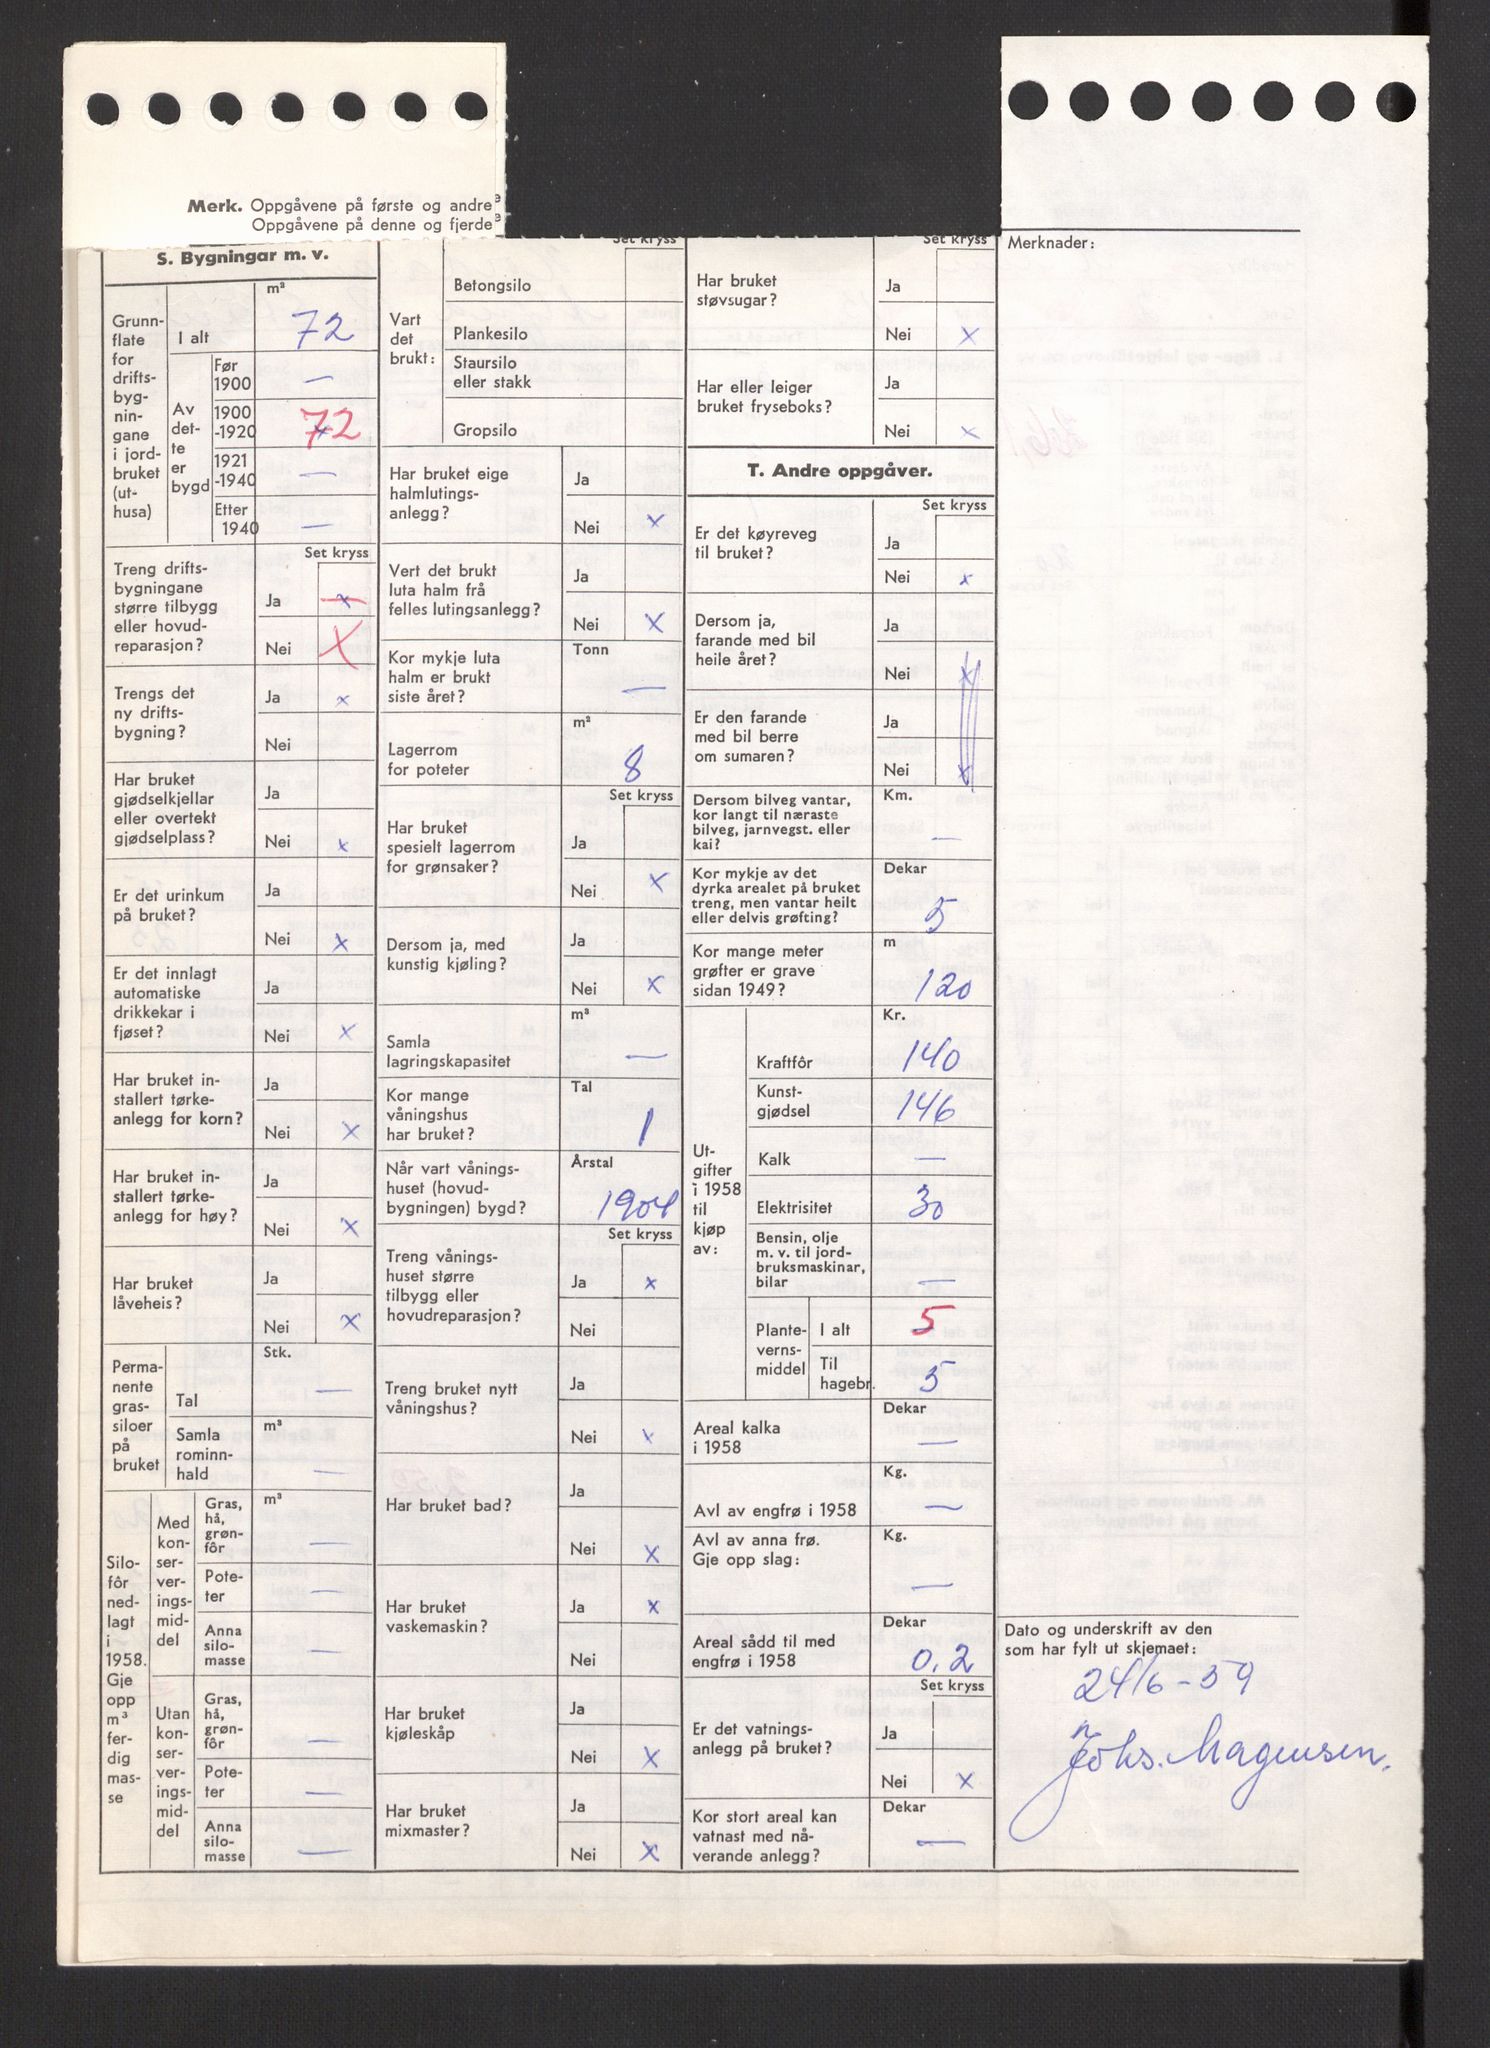 Merk. Oppgåvene på første og andre
Oppgåvene på denne og fjerde
S. Bygningar m. v.
Grunn-
flate
for
drifts-
byg-
nin-
gane
i jord-
bruket
(ut-
husa)
m²
I alt 72
Av
det-
te
er
bygd
Før
1900 —
1900
-1920 72
1921
-1940 —
Etter
1940 —
Set kryss
Treng drifts-
bygningane
større tilbygg
eller hovud-
reparasjon?
Ja x
Nei X
Trengs det
ny drifts-
bygning?
Ja x
Nei
Har bruket
gjødselkjellar
eller overtekt
gjødselplass?
Ja
Nei x
Er det urinkum
på bruket?
Ja
Nei x
Er det innlagt
automatiske
drikkekar i
fjøset?
Ja
Nei x
Har bruket in-
stallert tørke-
anlegg for korn?
Ja
Nei x
Har bruket in-
stallert tørke-
anlegg for høy?
Ja
Nei x
Har bruket
låveheis?
Ja
Nei x
Perma-
nente
gras-
siloer
på
bruket
Stk.
Tal —
m³
Samla
rominn-
hald —
Silo-
fôr
ned-
lagt
i
1958.
Gje
opp
m³
fer-
dig
mas-
se
m³
Med
kon-
ser-
ver-
ings-
mid-
del
Gras,
hå,
grøn-
fôr —
Pote-
ter —
Anna
silo-
masse —
Utan
kon-
ser-
ver-
ings-
mid-
del
Gras,
hå,
grøn-
fôr —
Pote-
ter —
Anna
silo-
masse —
Set kryss
Vart
det
brukt:
Betongsilo
Plankesilo
Staursilo
eller stakk
Gropsilo
Har bruket eige
halmlutings-
anlegg?
Ja
Nei x
Vert det brukt
luta halm frå
felles lutingsanlegg?
Ja
Nei x
Kor mykje luta
halm er brukt
siste året?
Tonn
—
Lagerrom
for poteter
m²
8
Set kryss
Har bruket
spesielt lagerrom
for grønsaker?
Ja
Nei x
Dersom ja, med
kunstig kjøling?
Ja
Nei x
Samla
lagringskapasitet
m³
—
Kor mange
våningshus
har bruket?
Tal
1
Når vart vånings-
huset (hovud-
bygningen) bygd?
Årstal
1904
Set kryss
Treng vånings-
huset større
tilbygg eller
hovudreparasjon?
Ja x
Nei
Treng bruket nytt
våningshus?
Ja
Nei x
Har bruket bad?
Ja
Nei x
Har bruket
vaskemaskin?
Ja x
Nei
Har bruket
kjøleskåp
Ja
Nei x
Har bruket
mixmaster?
Ja
Nei x
Set kryss
Har bruket
støvsugar?
Ja
Nei x
Har eller leiger
bruket fryseboks?
Ja
Nei x
T. Andre oppgåver.
Set kryss
Er det køyreveg
til bruket?
Ja
Nei x
Dersom ja,
farande med bil
heile året?
Ja
Nei x
Er den farande
med bil berre
om sumaren?
Ja
Nei x
Dersom bilveg vantar,
kor langt til næraste
bilveg, jarnvegst. eller
kai?
Km.
—
Kor mykje av det
dyrka arealet på bruket
treng, men vantar heilt
eller delvis grøfting?
Dekar
5
Kor mange meter
grøfter er grave
sidan 1949?
m
120
Ut-
gifter
i 1958
til
kjøp
av:
Kr.
Kraftfôr 140
Kunst-
gjødsel 146
Kalk —
Elektrisitet 30
Bensin, olje
m. v. til jord-
bruksmaskinar,
bilar —
Plante-
verns-
middel
I alt 5
Til
hagebr. 5
Areal kalka
i 1958
Dekar
—
Avl av engfrø i 1958
Kg.
—
Avl av anna frø.
Gje opp slag:
Kg.
—
Areal sådd til med
engfrø i 1958
Dekar
0.2
Set kryss
Er det vatnings-
anlegg på bruket?
Ja
Nei x
Kor stort areal kan
vatnast med nå-
verande anlegg?
Dekar
—
Merknader:
Dato og underskrift av den
som har fylt ut skjemaet:
24/6-59
Johs. Magnusen.